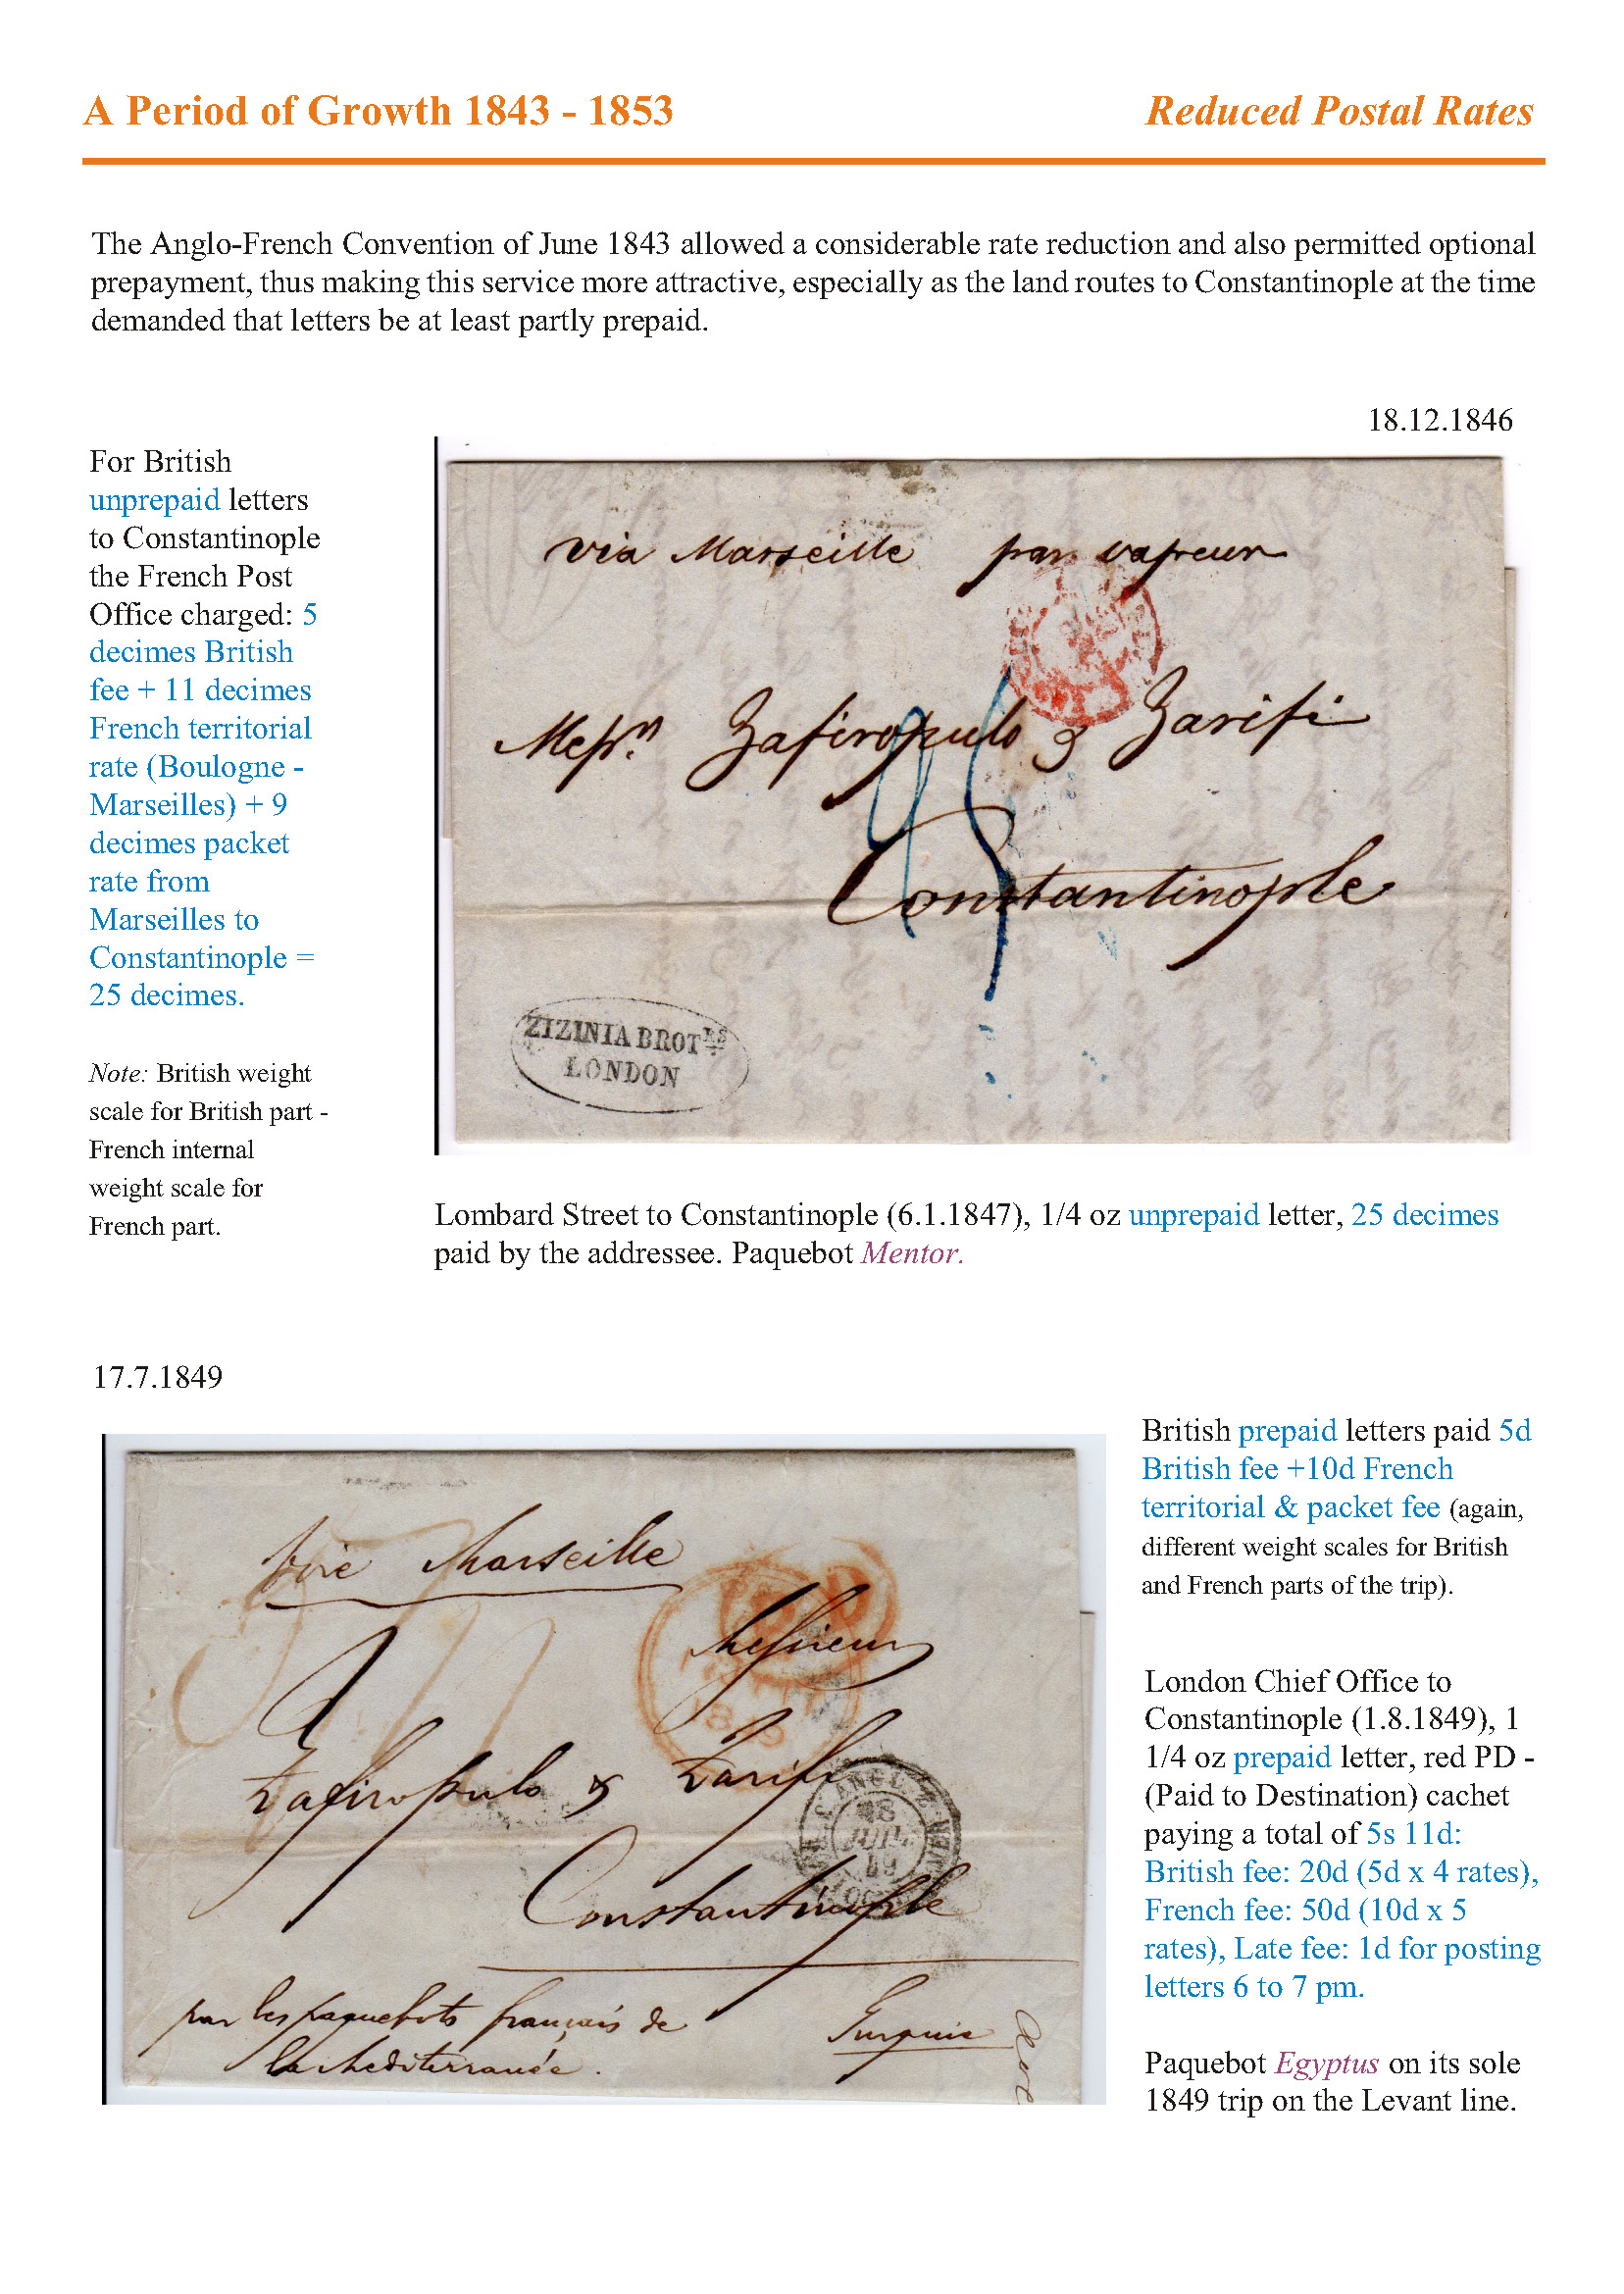 A Period of Growth 1843 - 1853
Reduced Postal Rates
The Anglo-French Convention of June 1843 allowed a considerable rate reduction and also permitted optional
prepayment, thus making this service more attractive, especially as the land routes to Constantinople at the time
demanded that letters be at least partly prepaid.
18.12.1846
For British
unprepaid letters
to Constantinople
the French Post
Office charged: 5
decimes British
fee + 11 decimes
French territorial
rate (Boulogne -
Marseilles) + 9
decimes packet
rate from
Marseilles to
Constantinople =
25 decimes.
Note: British weight
scale for British part -
French internal
weight scale for
French part.
via Marseille par vapeur
Messrs Zafiropulo & Zarifi
25
Constantinople
ZIZINIA BROTRS
LONDON
Lombard Street to Constantinople (6.1.1847), 1/4 oz unprepaid letter, 25 decimes
paid by the addressee. Paquebot Mentor.
17.7.1849
Voie Marseille
Messieurs
Zafiropulo & Zarifi
Constantinople
par les paquebots français de
la Mediterranée.
Turquie
18
JUIL.
49
British prepaid letters paid 5d
British fee +10d French
territorial & packet fee (again,
different weight scales for British
and French parts of the trip).
London Chief Office to
Constantinople (1.8.1849), 1
1/4 oz prepaid letter, red PD -
(Paid to Destination) cachet
paying a total of 5s 11d:
British fee: 20d (5d x 4 rates),
French fee: 50d (10d x 5
rates), Late fee: 1d for posting
letters 6 to 7 pm.
Paquebot Egyptus on its sole
1849 trip on the Levant line.